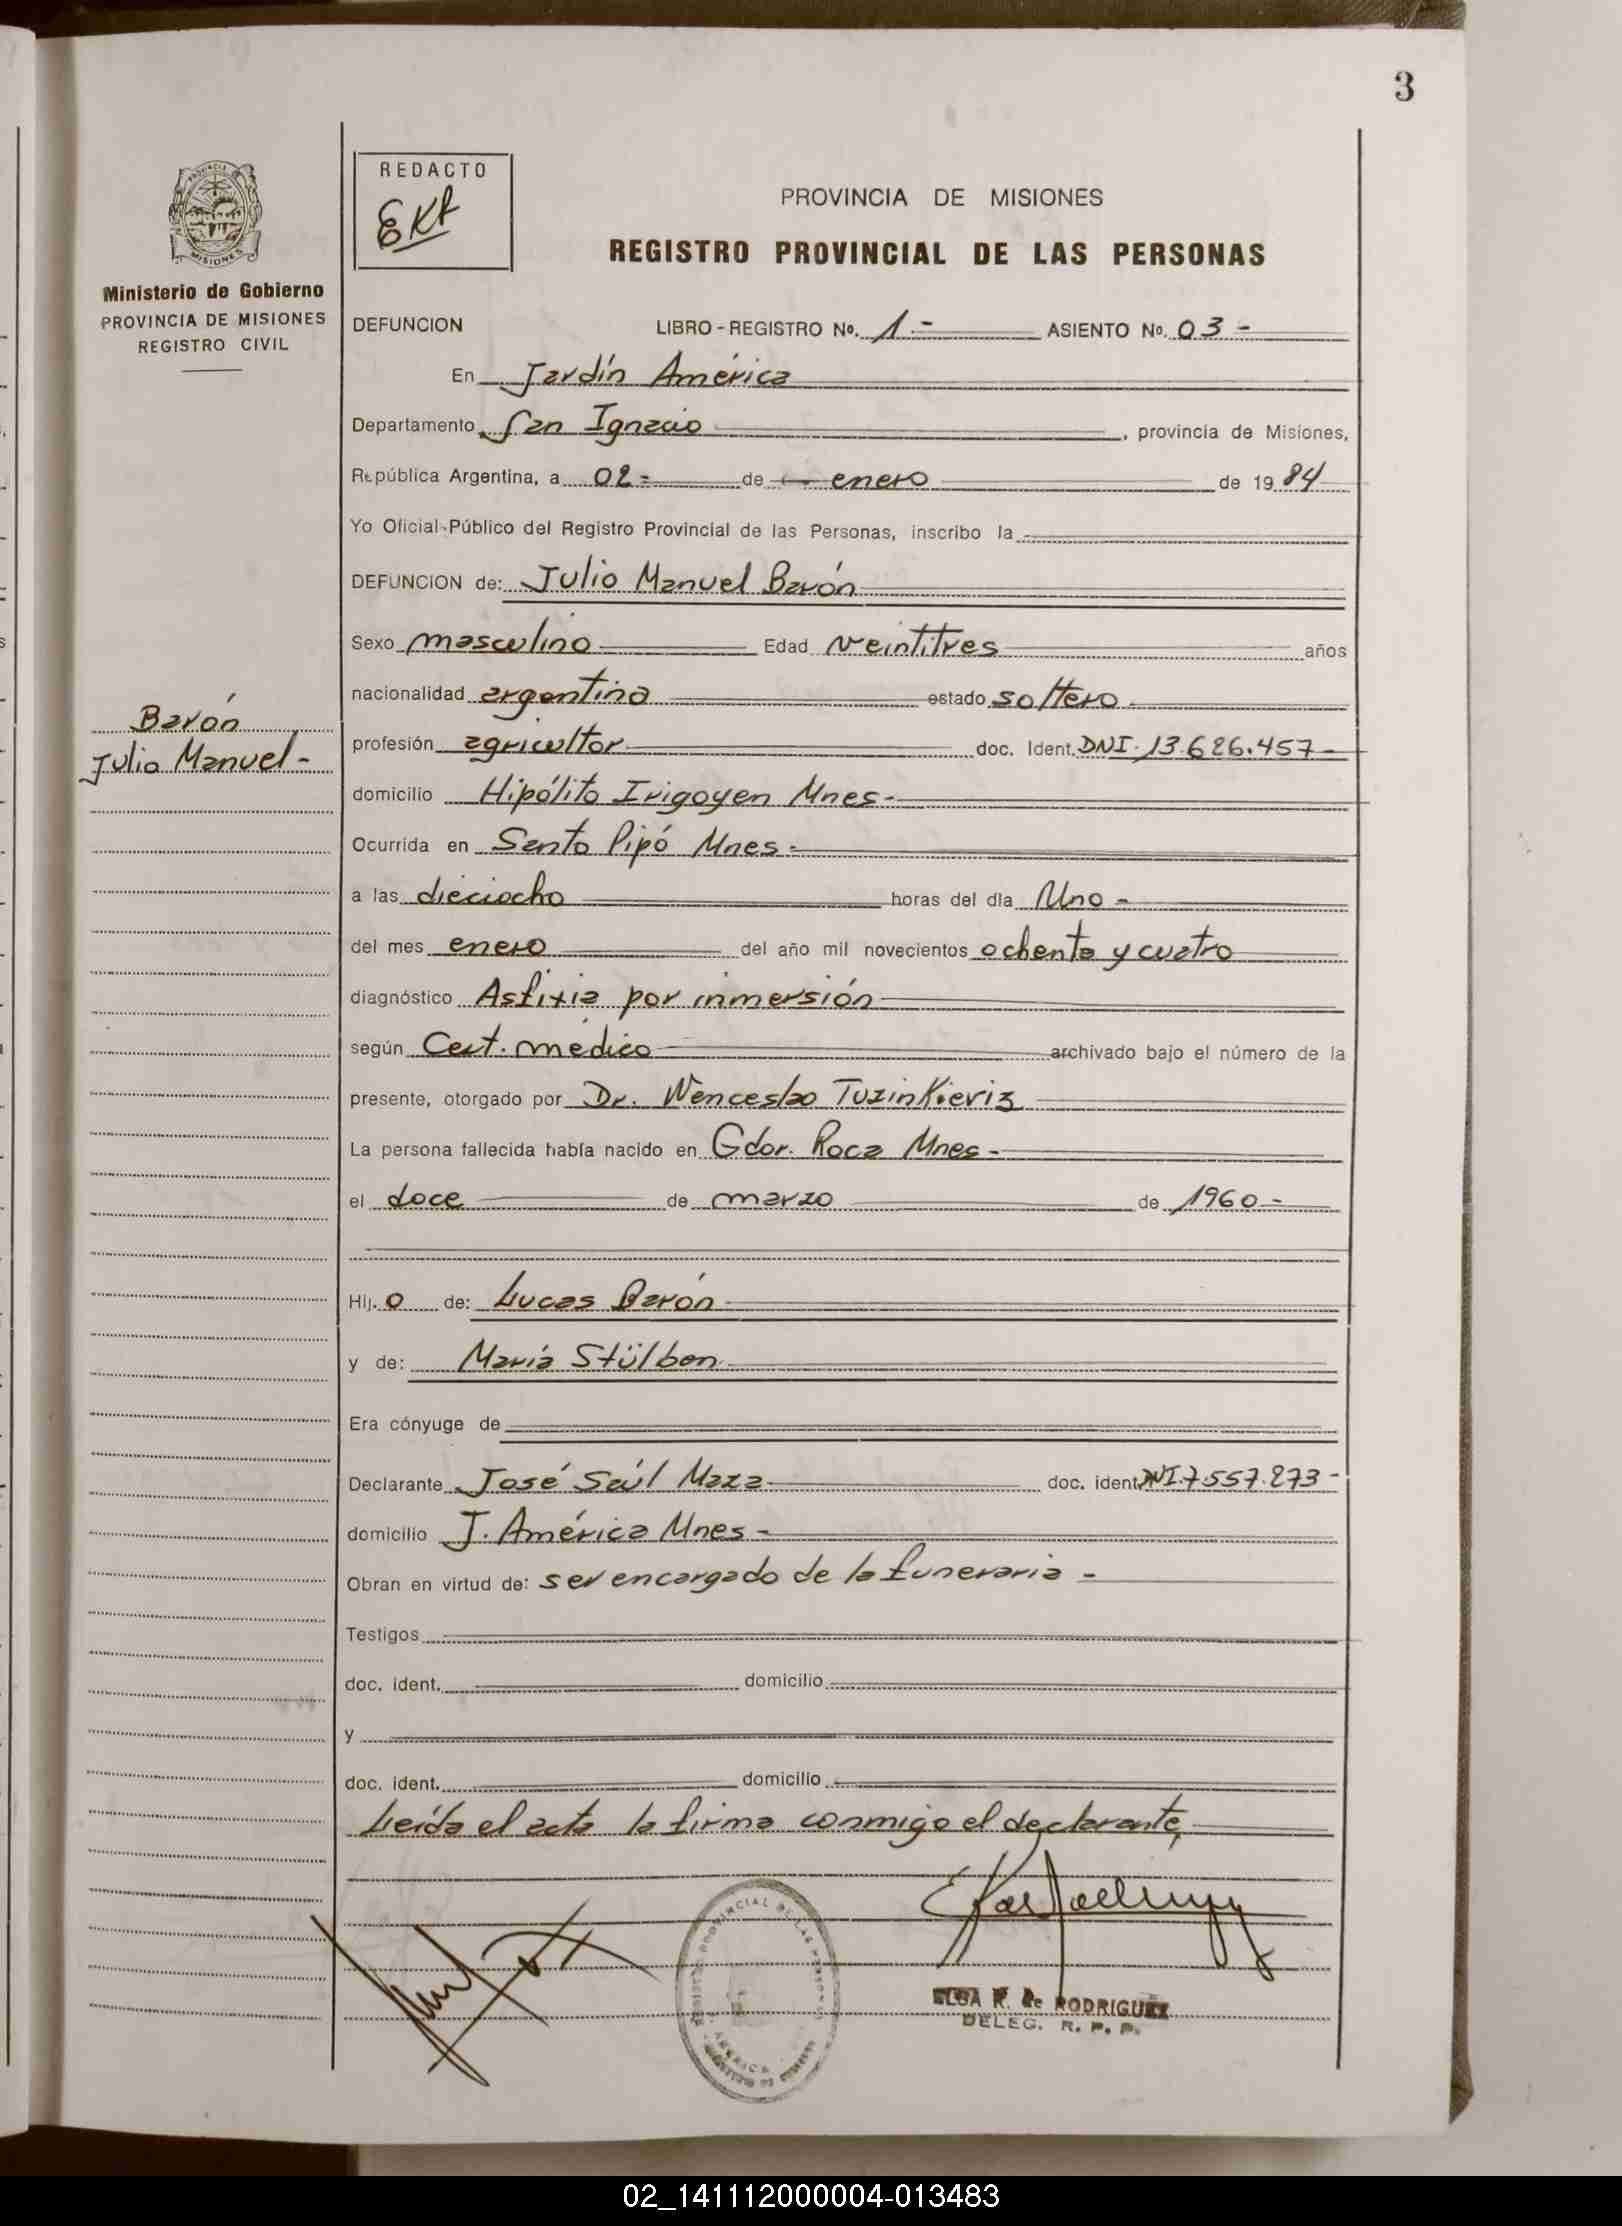 3
REDACTO
EKA
PROVINCIA DE MISIONES
REGISTRO PROVINCIAL DE LAS PERSONAS
Ministerio de Gobierno
PROVINCIA DE MISIONES
REGISTRO CIVIL
DEFUNCION LIBRO-REGISTRO No. 1- ASIENTO No. 03-
En Jardín América
Departamento San Ignacio, provincia de Misiones,
República Argentina, a 02- de enero de 1984
Yo Oficial Público del Registro Provincial de las Personas, inscribo la
DEFUNCION de: Julio Manuel Barón
Sexo masculino Edad veintitres años
nacionalidad argentina estado soltero
Barón
Julio Manuel-
profesión agricultor doc. Ident. DNI. 13.626.457-
domicilio Hipólito Irigoyen Mnes-
Ocurrida en Santo Pipó Mnes-
a las dieciocho horas del día Uno-
del mes enero del año mil novecientos ochenta y cuatro
diagnóstico Asfixia por inmersión
según Cert. médico archivado bajo el número de la
presente, otorgado por Dr. Wenceslao Tuzinkieviz
La persona fallecida había nacido en Gdor. Roca Mnes-
el doce de marzo de 1960-
Hij. o de: Lucas Barón
y de: María Stülben
Era cónyuge de
Declarante José Saúl Maza doc. ident. DNI.7.557.273-
domicilio J. América Mnes-
Obran en virtud de: ser encargado de la funeraria-
Testigos
doc. ident. domicilio
y
doc. ident. domicilio
Leída el acta la firma conmigo el declarante,
ELSA R. de RODRIGUEZ
DELEG. R. P. P.
02_141112000004-013483